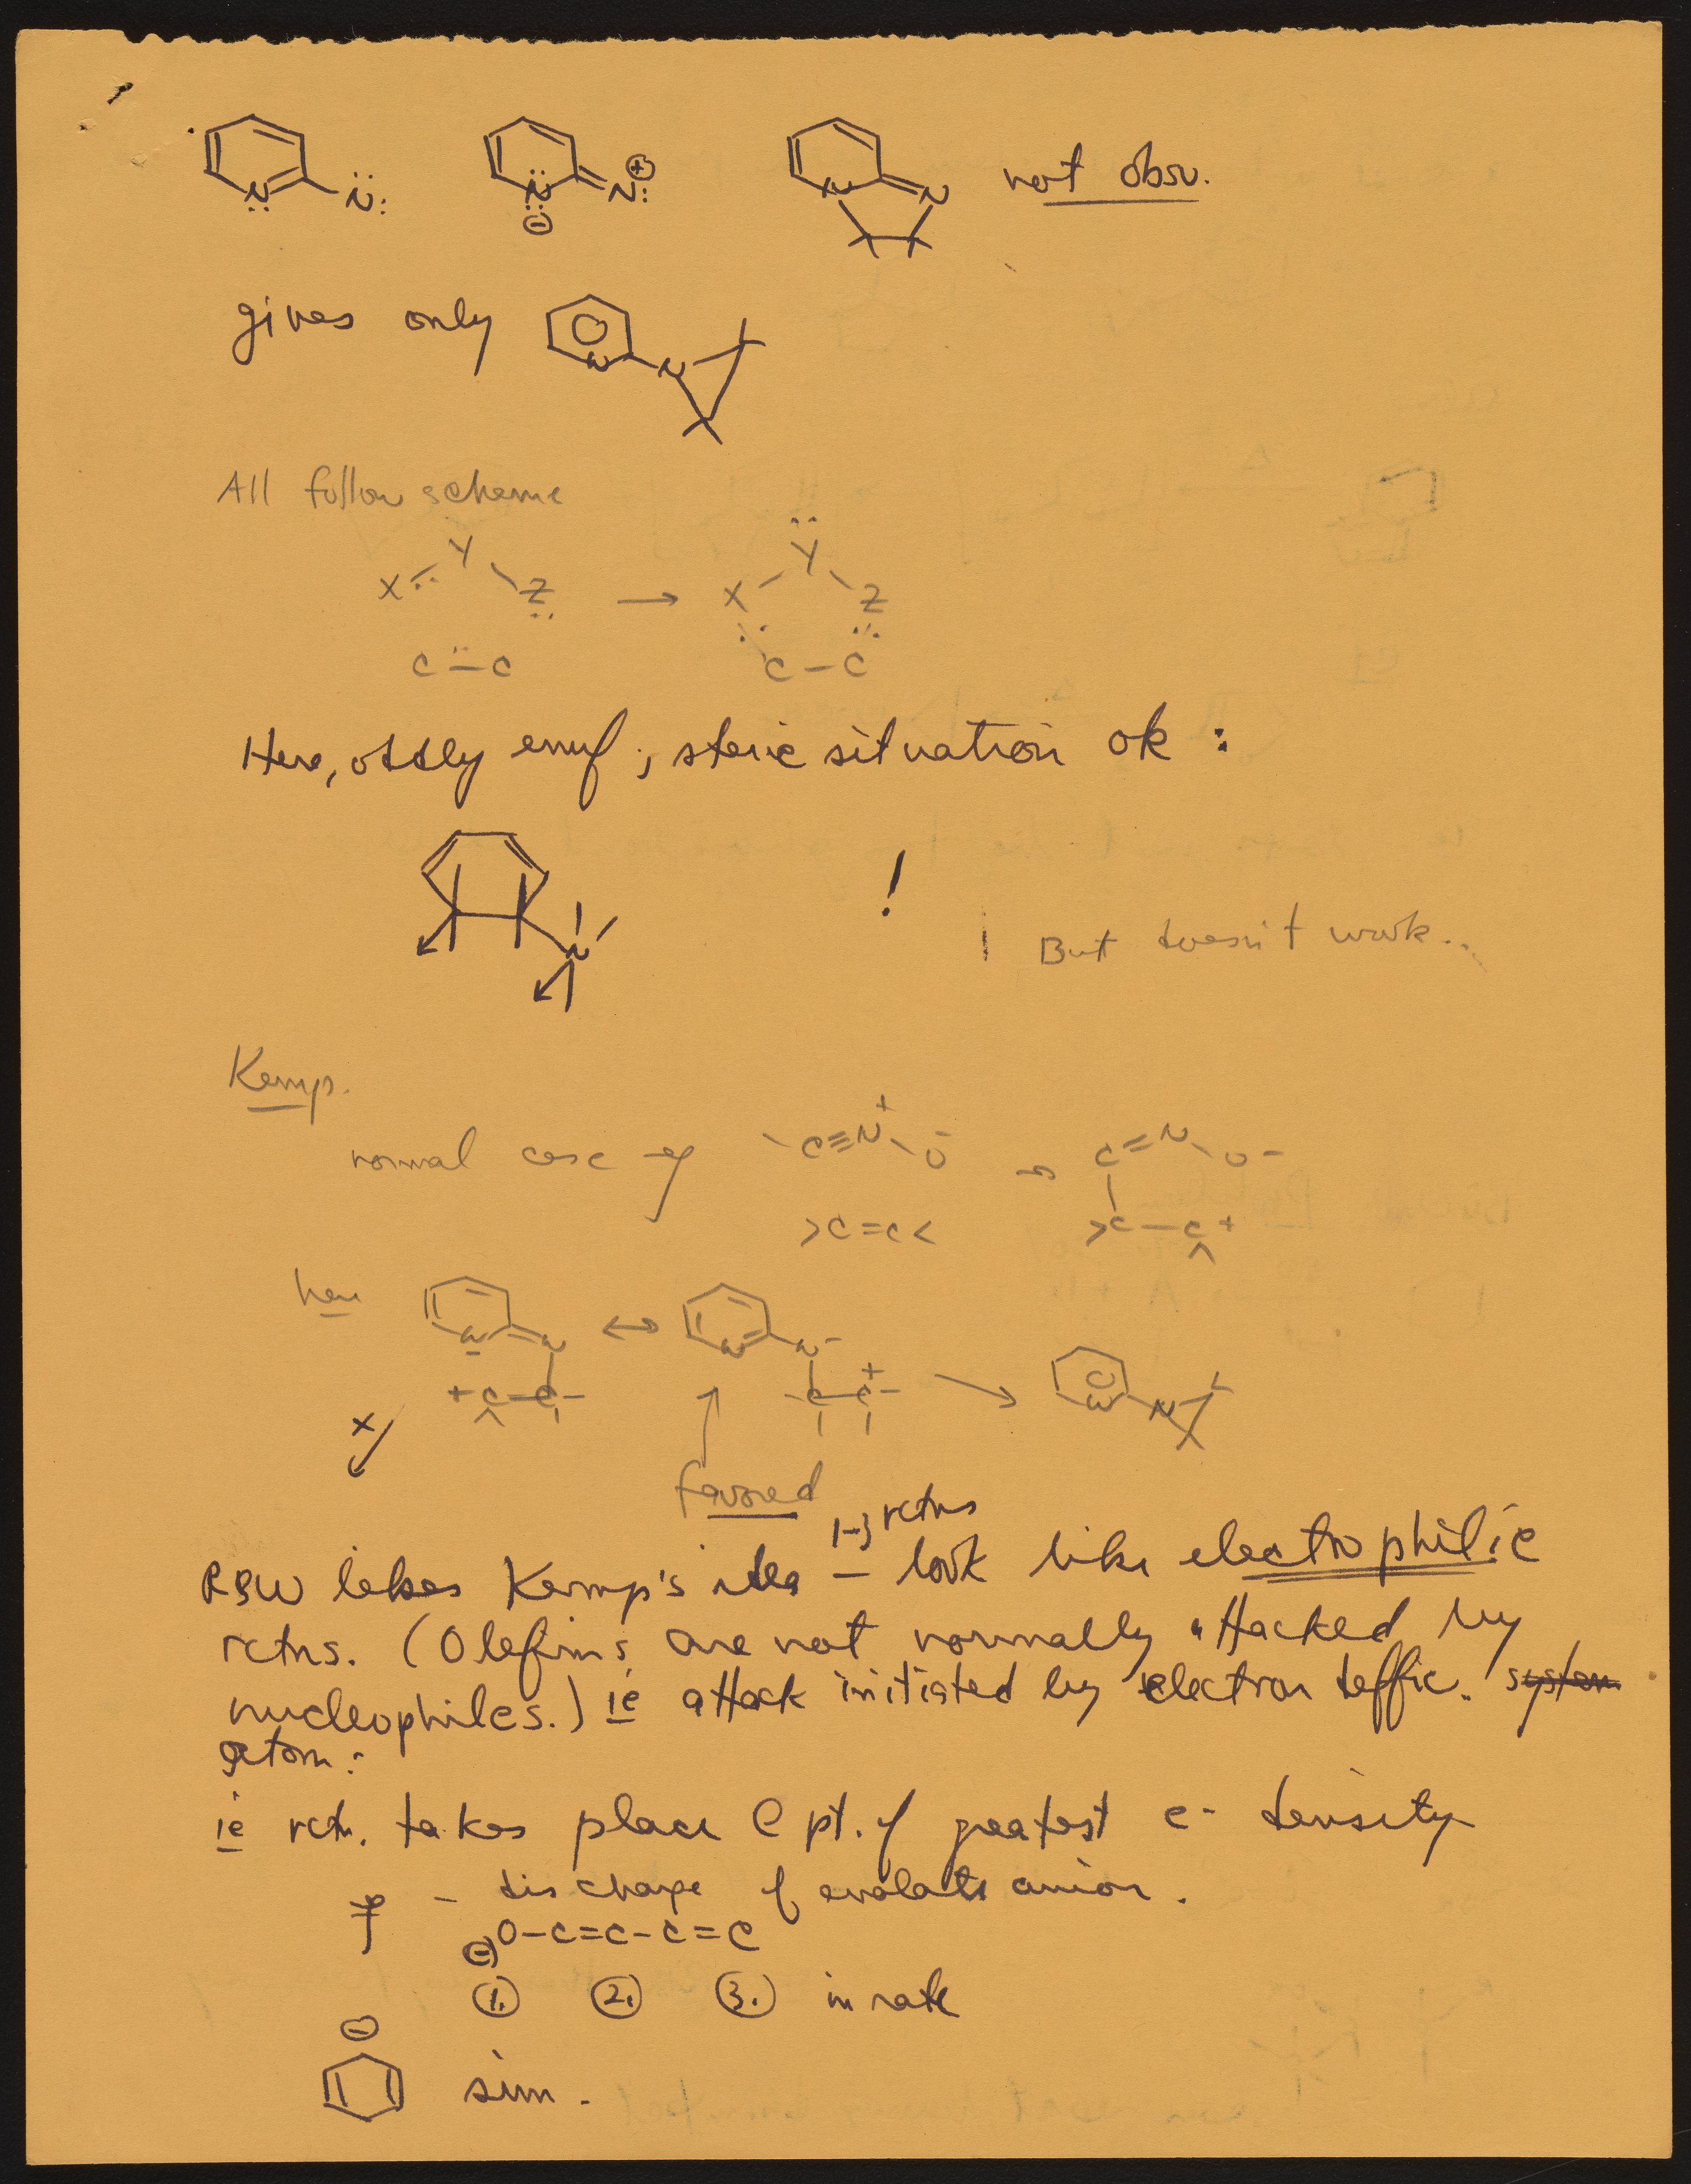 N N: N ⊖ N: ⊕ N N not obsv.
gives only N N
All follow scheme
X Y Z → X Y Z
C — C C — C
Here, oddly enuf, steric situation ok :
N !
But doesn't work..
Kemp.
normal case eg — C≡N⁺ — O⁻ → C=N — O⁻
>C=C< >C — C +
here N N ↔ N N⁻ → N N
+ C—C— —C—C— +
X
favored
1-3 rctns
RBW likes Kemp's idea — look like electrophilic
rctns. (Olefins are not normally attacked by
nucleophiles.) ie attack initiated by electron deffic. system
atom:
ie rctn. takes place @ pt. of greatest e- density
- discharge of enolate anion.
⊖O-C=C-C=C
①. ②. ③. in rate
⊖
sim.